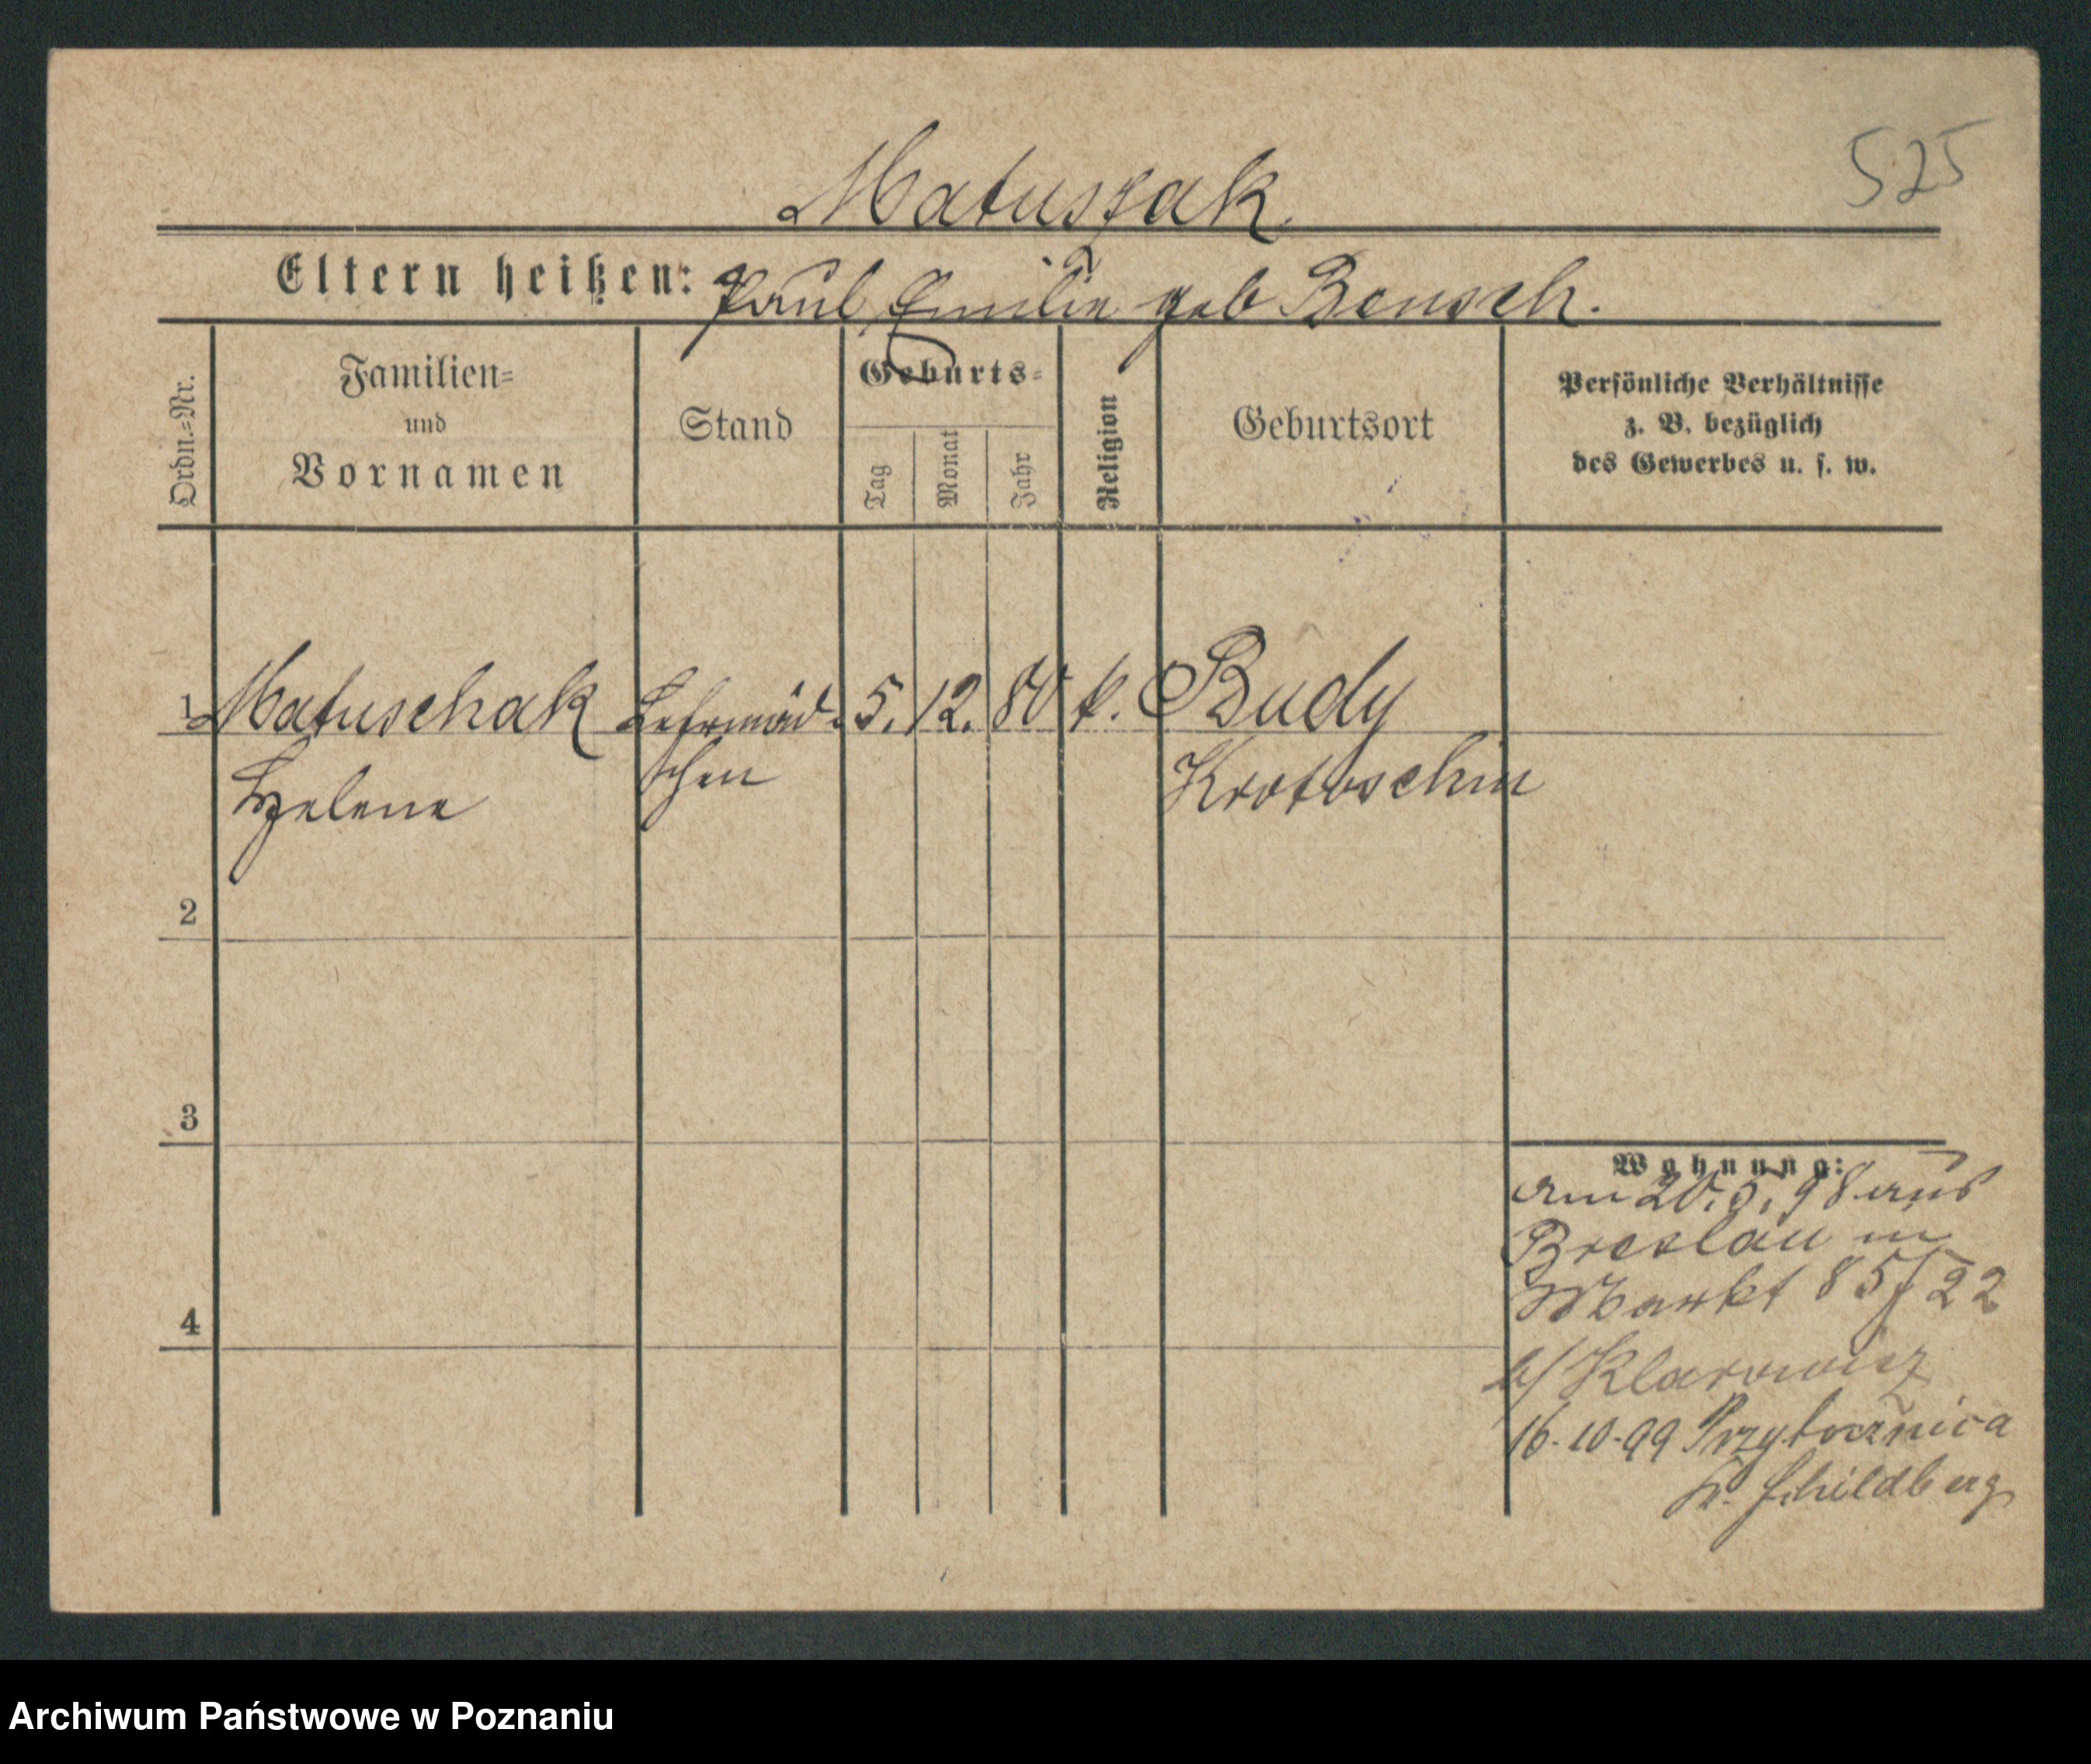 525
Matuszak.
Eltern heißen: Paul Emilie geb Bensch.
Ordn.-Nr.
Familien-
und
Vornamen
Stand
Geburts-
Tag
Monat
Jahr
Religion
Geburtsort
Persönliche Verhältnisse
z. B. bezüglich
des Gewerbes u. s. w.
1 Matuschak Lehrmäd- 5. 12. 80 k. Budy
Helene schen Krotoschin
2
3
4
Wohnung:
am 20.5.98 aus
Breslau in
Markt 85/22
b/
16.10.99 Przytocznica
Kr. Schildberg
Archiwum Państwowe w Poznaniu